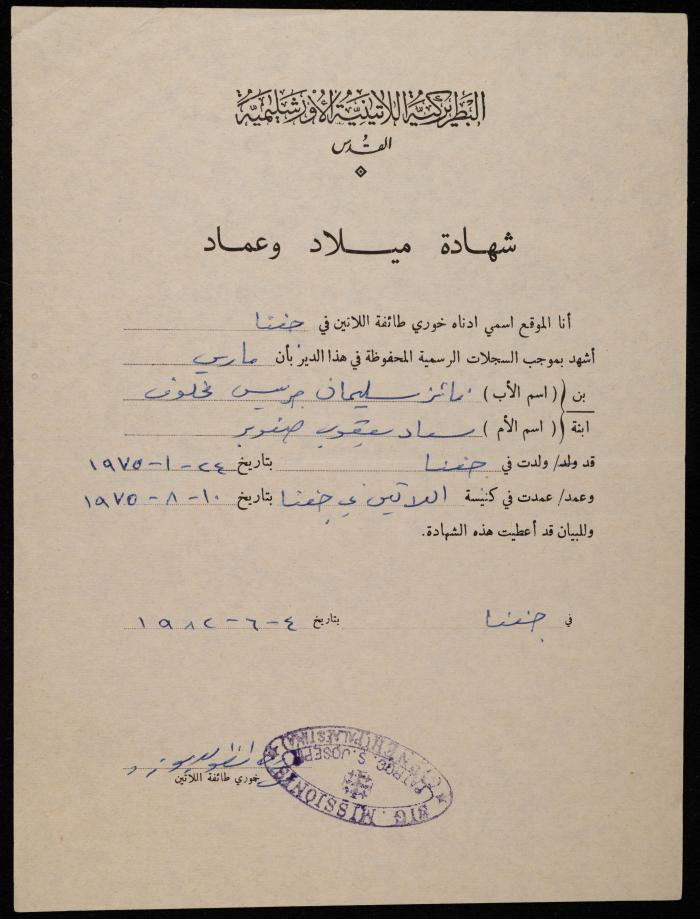 البطريركية اللاتينية الأورشليمية
القدس
شهادة ميلاد وعماد
أنا الموقع اسمي ادناه خوري طائفة اللاتين في جفنا
أشهد بموجب السجلات الرسمية المحفوظة في هذا الدير بأن ماري
بن ( اسم الأب ) فائز سليمان جريس مخلوف
ابنة ( اسم الأم ) سعاد يعقوب
قد ولد/ ولدت في جفنا بتاريخ ٢٤-١-١٩٧٥
وعمد/ عمدت في كنيسة اللاتين في جفنا بتاريخ ١٠-٨-١٩٧٥
وللبيان قد أعطيت هذه الشهادة.
في جفنا بتاريخ ٤-٦-١٩٨٢
خوري طائفة اللاتين
SIG. MISSIONIS
PATROC. S. JOSEPH
(PALAESTINA)